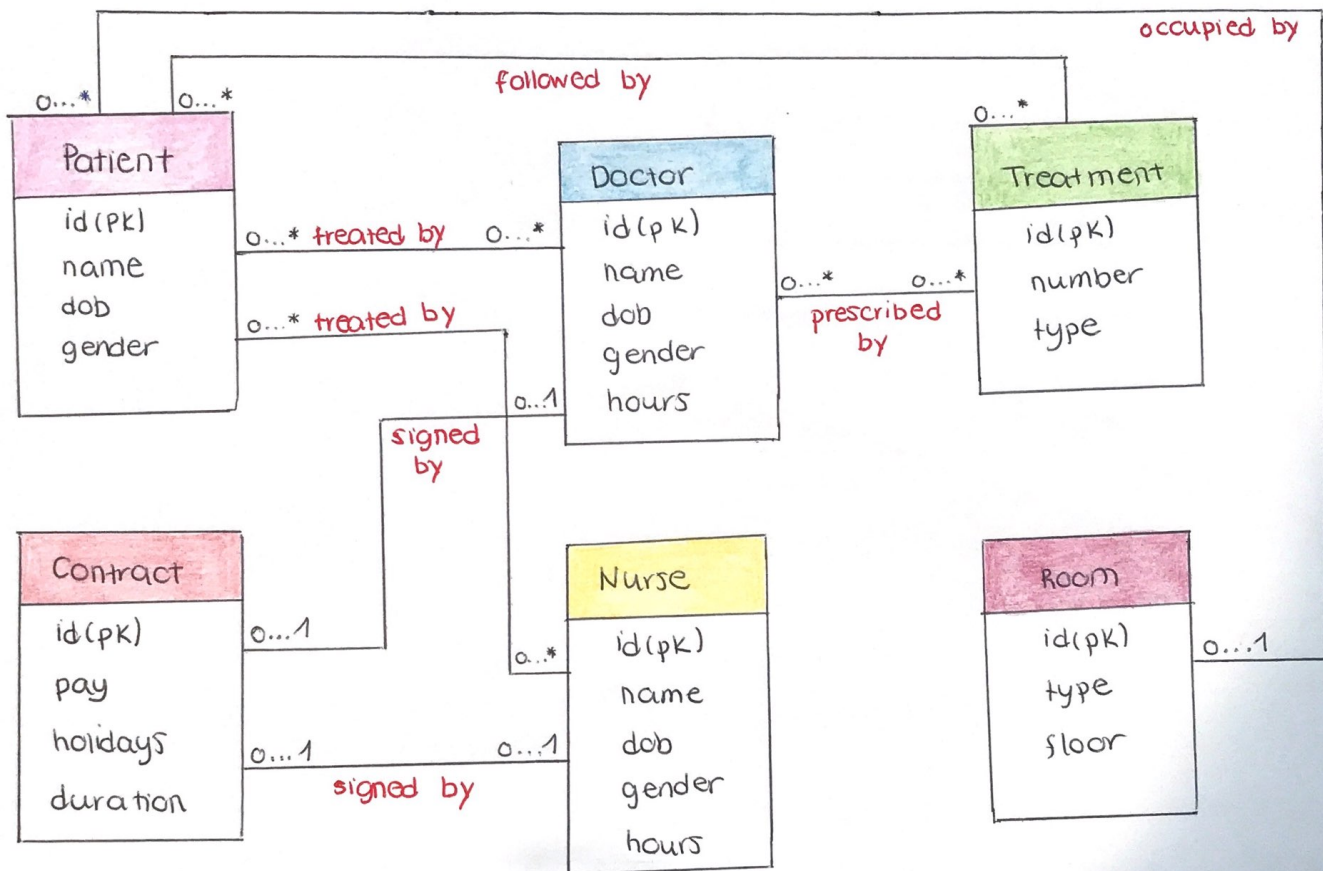 occupied by
followed by
0...*
0...*
0...*
Patient
id(PK)
name
dob
gender
0...* treated by 0...*
0...* treated by
Doctor
id(pk)
name
dob
gender
hours
0...*
0...*
prescribed
by
Treatment
id(pk)
number
type
0...1
signed
by
Contract
id(pk)
pay
holidays
duration
0...1
0...1
0...1
signed by
0...*
Nurse
id(pk)
name
dob
gender
hours
Room
id(pk)
type
floor
0...1